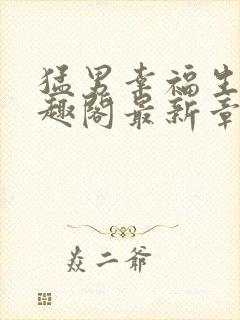 猛男幸福生
趣阁最新章
焱二爷